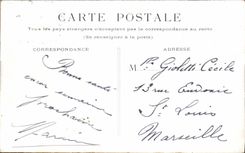 CARTE POSTALE
Tous les pays étrangers n'acceptent pas la correspondance au recto
(Se renseigner à la poste)
CORRESPONDANCE
ADRESSE
Bonne santé
Marie
Gioletti Cécile
13 rue
St Louis
Marseille